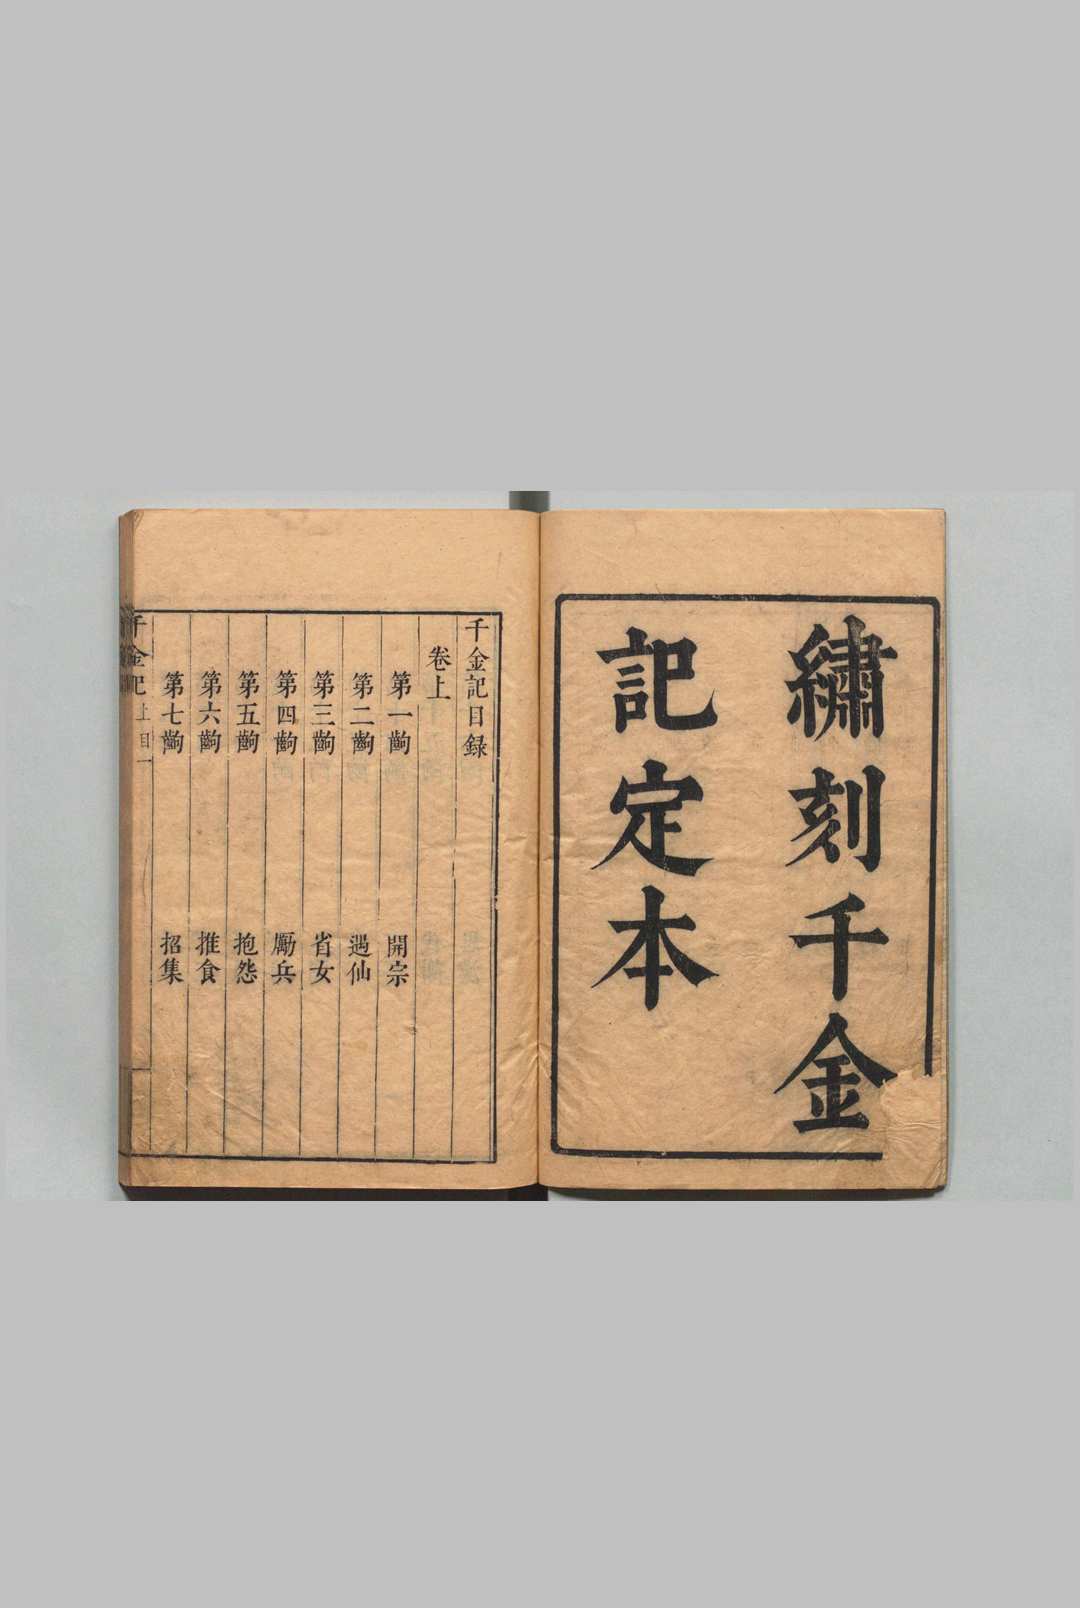 繡刻千金
記定本
千金記目録
卷上
第一齣 開宗
第二齣 遇仙
第三齣 省女
第四齣 勵兵
第五齣 抱怨
第六齣 推食
第七齣 招集
千金記 上目 一